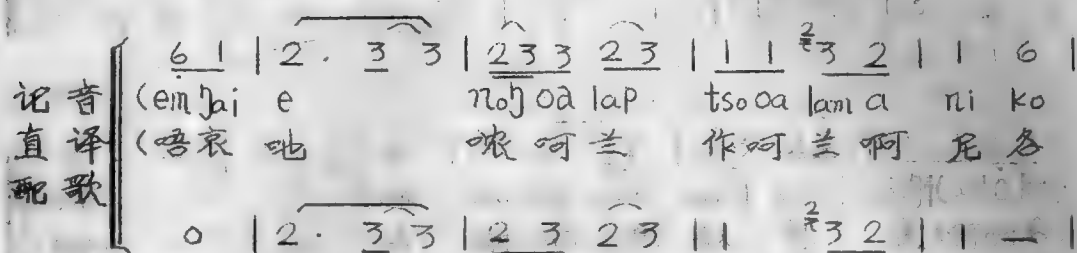 6 1 | 2 . 3 3 | 2 3 3 2 3 | 1 1 2 3 2 | 1 6 |
记音 (eiŋ ŋai e noŋ oa lap tso oa lam a ni ko
直译 (唔哀 吔 哝 呵 兰 作 呵 兰 啊 尼 各
配歌
0 | 2 . 3 3 | 2 3 2 3 | 1 2 3 2 | 1 — |